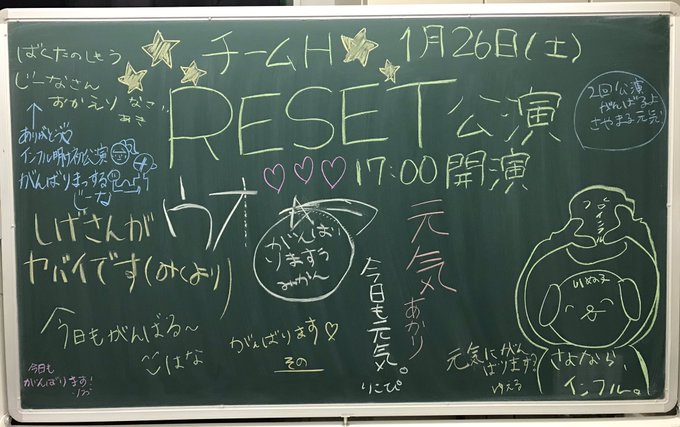 チームH 1月26日(土)
RESET公演
17:00開演
ばくたのしょう
じーなさん
おかえりなさい
あき
ありがとう
インフル明け初公演
がんばりまっする
じーな
2回公演
がんばるよ
さやまる元気!
しげさんが
ヤバイです(みくより)
ウオ
がんばり
ますう
みかん
元気
あかり
今日も元気。
りこぴ
今日もがんばる〜
こはな
がんばります♡
その
今日も
がんばります!
元気にがん
ばります?
ゆえる
いぬの子
さよなら、
インフル。